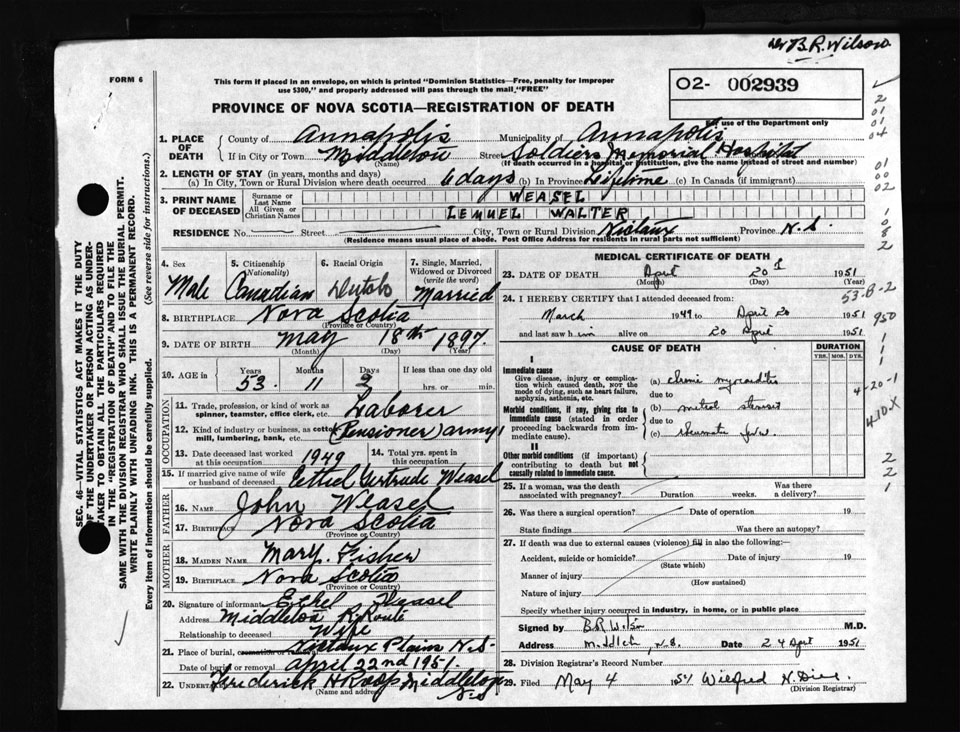 Dr B.R. Wilson
FORM 6
This form if placed in an envelope, on which is printed "Dominion Statistics—Free, penalty for improper
use $300," and properly addressed will pass through the mail "FREE"
PROVINCE OF NOVA SCOTIA—REGISTRATION OF DEATH
02- 002939
For use of the Department only
1. PLACE OF DEATH
County of Annapolis Municipality of Annapolis
If in City or Town Middleton (Name) Street Soldiers Memorial Hospital
(If death occurred in a hospital or institution, give the name instead of street and number)
2. LENGTH OF STAY (in years, months and days)
(a) In City, Town or Rural Division where death occurred 6 days (b) In Province Lifetime (c) In Canada (if immigrant)
3. PRINT NAME OF DECEASED
Surname or Last Name WEASEL
All Given or Christian Names LEMUEL WALTER
RESIDENCE No. Street City, Town or Rural Division Nictaux Province N.S.
(Residence means usual place of abode. Post Office Address for residents in rural parts not sufficient)
4. Sex Male
5. Citizenship (Nationality) Canadian
6. Racial Origin Dutch
7. Single, Married, Widowed or Divorced (write the word) Married
8. BIRTHPLACE Nova Scotia
(Province or Country)
9. DATE OF BIRTH May 18th 1897
(Month) (Day) (Year)
10. AGE in Years 53 Months 11 Days If less than one day old hrs. or min.
OCCUPATION
11. Trade, profession, or kind of work as spinner, teamster, office clerk, etc. Laborer
12. Kind of industry or business, as cotton mill, lumbering, bank, etc. (Pensioner) army
13. Date deceased last worked at this occupation 1949
14. Total yrs. spent in this occupation
15. If married give name of wife or husband of deceased Ethel Gertrude Weasel
FATHER
16. NAME John Weasel
17. BIRTHPLACE Nova Scotia
(Province or Country)
MOTHER
18. MAIDEN NAME Mary Fisher
19. BIRTHPLACE Nova Scotia
(Province or Country)
20. Signature of informant Ethel Weasel
Address Middleton R. Route
Relationship to deceased Wife
21. Place of burial, cremation or removal Nictaux Plain N.S.
Date of burial or removal April 22nd 1951.
22. Undertaker Frederick H Roop Middleton N.S.
(Name and address)
MEDICAL CERTIFICATE OF DEATH
23. DATE OF DEATH April 20 1951
(Month) (Day) (Year)
24. I HEREBY CERTIFY that I attended deceased from:
March 1949 to April 20 1951
and last saw him alive on 20 April 1951
CAUSE OF DEATH
DURATION
YRS. MOS. DYS.
I
Immediate cause
Give disease, injury or complication which caused death, not the mode of dying, such as heart failure, asphyxia, asthenia, etc.
(a) chronic myocarditis
due to
Morbid conditions, if any, giving rise to immediate cause (stated in order proceeding backwards from immediate cause).
(b) mitral stenosis
due to
(c) rheumatic fever
II
Other morbid conditions (if important) contributing to death but not causally related to immediate cause.
25. If a woman, was the death associated with pregnancy? Duration weeks. Was there a delivery?
26. Was there a surgical operation? Date of operation 19
State findings Was there an autopsy?
27. If death was due to external causes (violence) fill in also the following:
Accident, suicide or homicide? Date of injury 19
(State which)
Manner of injury
(How sustained)
Nature of injury
Specify whether injury occurred in industry, in home, or in public place
Signed by B.R. Wilson M.D.
Address Middleton, N.S. Date 24 April 1951
28. Division Registrar's Record Number
29. Filed May 4 1951 Wilfred
(Division Registrar)
SEC. 46—VITAL STATISTICS ACT MAKES IT THE DUTY
OF THE UNDERTAKER OR PERSON ACTING AS UNDER-
TAKER TO OBTAIN ALL THE PARTICULARS REQUIRED
IN THE "REGISTRATION OF DEATH" AND TO FILE THE
SAME WITH THE DIVISION REGISTRAR WHO SHALL ISSUE THE BURIAL PERMIT.
WRITE PLAINLY WITH UNFADING INK. THIS IS A PERMANENT RECORD.
Every item of information should be carefully supplied. (See reverse side for instructions.)
2
01
01
04
01
00
02
1
0
8
2
53-B-2
950
1
1
1
4-20-1
410.X
2
2
1